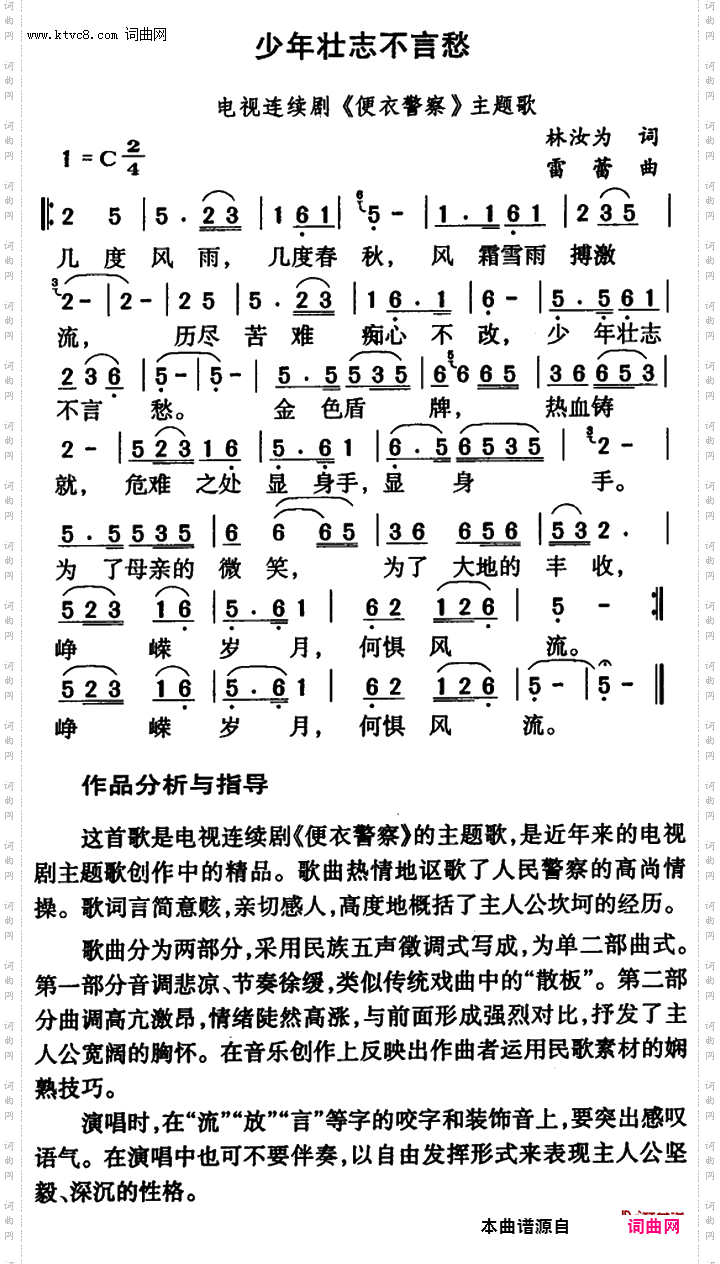 www.ktvc8.com 词曲网
少年壮志不言愁
电视连续剧《便衣警察》主题歌
1=C 2/4
林汝为 词
雷蕾 曲
2 5 | 5·23 | 1 6 1 | 5 - | 1·1 6 1 | 2 3 5 |
几度风雨，几度春秋，风霜雪雨搏激
2 - | 2 - | 2 5 | 5·23 | 1 6·1 | 6 - | 5·5 6 1 |
流，历尽苦难痴心不改，少年壮志
2 3 6 | 5 - | 5 - | 5·5 5 3 5 | 6 6 6 5 | 3 6 6 5 3 |
不言愁。金色盾牌，热血铸
2 - | 5 2 3 1 6 | 5·6 1 | 6·5 6 5 3 5 | 2 - |
就，危难之处显身手，显身手。
5·5 5 3 5 | 6 6 6 5 | 3 6 6 5 6 | 5 3 2· |
为了母亲的微笑，为了大地的丰收，
5 2 3 1 6 | 5·6 1 | 6 2 1 2 6 | 5 - :‖
峥嵘岁月，何惧风流。
5 2 3 1 6 | 5·6 1 | 6 2 1 2 6 | 5 - | 5 - ‖
峥嵘岁月，何惧风流。
作品分析与指导
这首歌是电视连续剧《便衣警察》的主题歌，是近年来的电视
剧主题歌创作中的精品。歌曲热情地讴歌了人民警察的高尚情
操。歌词言简意赅，亲切感人，高度地概括了主人公坎坷的经历。
歌曲分为两部分，采用民族五声徵调式写成，为单二部曲式。
第一部分音调悲凉、节奏徐缓，类似传统戏曲中的“散板”。第二部
分曲调高亢激昂，情绪陡然高涨，与前面形成强烈对比，抒发了主
人公宽阔的胸怀。在音乐创作上反映出作曲者运用民歌素材的娴
熟技巧。
演唱时，在“流”“放”“言”等字的咬字和装饰音上，要突出感叹
语气。在演唱中也可不要伴奏，以自由发挥形式来表现主人公坚
毅、深沉的性格。
本曲谱源自 词曲网